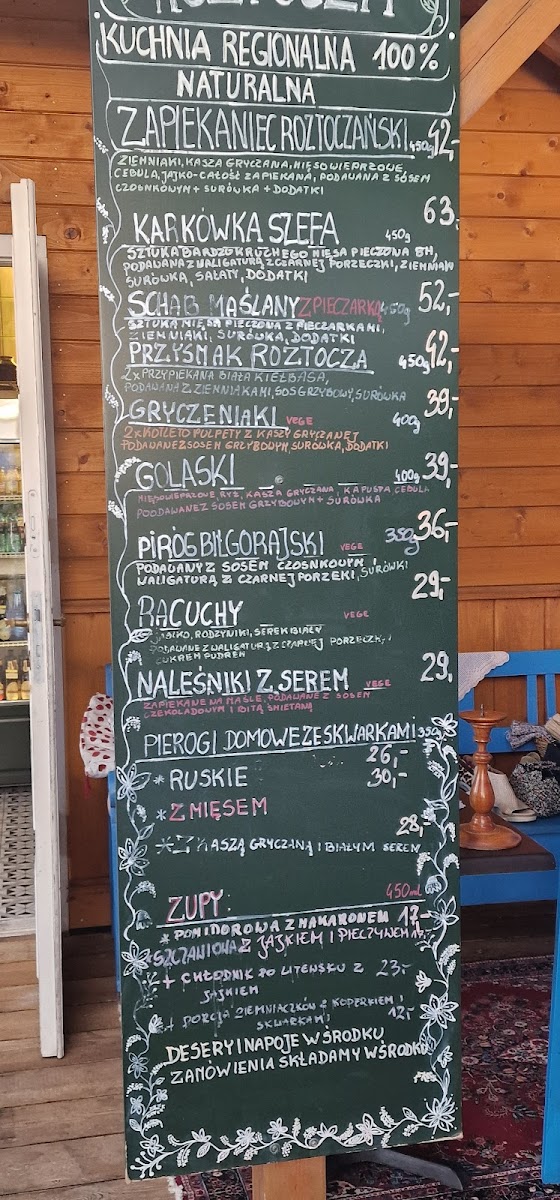 KUCHNIA REGIONALNA 100%
NATURALNA
ZAPIEKANIEC ROZTOCZAŃSKI 450g 42,-
ZIEMNIAKI, KASZA GRYCZANA, MIĘSO WIEPRZOWE,
CEBULA, JAJKO-CAŁOŚĆ ZAPIEKANA, PODAWANA Z SOSEM
CZOSNKOWYM + SURÓWKA + DODATKI
KARKÓWKA SZEFA 450g 63,-
SZTUKA BARDZO KRUCHEGO MIĘSA PIECZONA 8H,
PODAWANA Z WALIGATURĄ Z CZARNEJ PORZECZKI, ZIEMNIAKI
SURÓWKA, SAŁATY, DODATKI
SCHAB MAŚLANY Z PIECZARKĄ 450g 52,-
SZTUKA MIĘSA PIECZONA Z PIECZARKAMI,
ZIEMNIAKI, SURÓWKA, DODATKI
PRZYSMAK ROZTOCZA 450g 42,-
2x PRZYPIEKANA BIAŁA KIEŁBASA,
PODAWANA Z ZIENNIAKAMI, SOS GRZYBOWY, SURÓWKA
GRYCZENIAKI VEGE 400g 39,-
2x KOTLETO PULPETY Z KASZY GRYCZANEJ
PODAWANE Z SOSEM GRZYBOWYM, SURÓWKA, DODATKI
GOLASKI 400g 39,-
MIĘSO WIEPRZOWE, RYŻ, KASZA GRYCZANA, KAPUSTA CEBULA
POODAWANE Z SOSEM GRZYBOWYM + SURÓWKA
PIRÓG BIŁGORAJSKI VEGE 350g 36,-
PODAWANY Z SOSEM CZOSNKOWYM I
WALIGATURĄ Z CZARNEJ PORZEKI, SURÓWKI
RACUCHY VEGE 29,-
JABŁKO, RODZYNIKI, SEREK BIAŁY
PODAWANE Z WALIGATURĄ Z CZARNEJ PORZECZKI,
CUKREM PUDREM
NALEŚNIKI Z SEREM VEGE 29,
ZAPIEKANE NA MAŚLE, PODAWANE Z SOSEM
CZEKOLADOWYM I BITĄ ŚMIETANĄ
PIEROGI DOMOWE ZE SKWARKAMI 350g
* RUSKIE 26,-
* Z MIĘSEM 30,-
* Z KASZĄ GRYCZANĄ I BIAŁYM SEREM 28,-
ZUPY: 450ml
* POMIDOROWA Z MAKARONEM 17,-
* SZCZAWIOWA Z JAJKIEM I PIECZYWEM 17,-
+ CHŁODNIK PO LITEWSKU Z 23,-
JAJKIEM
+ PORCJA ZIEMNIACZKÓW Z KOPERKIEM I
SKWARKAMI 12,-
DESERY I NAPOJE W ŚRODKU
ZANÓWIENIA SKŁADAMY W ŚRODKU